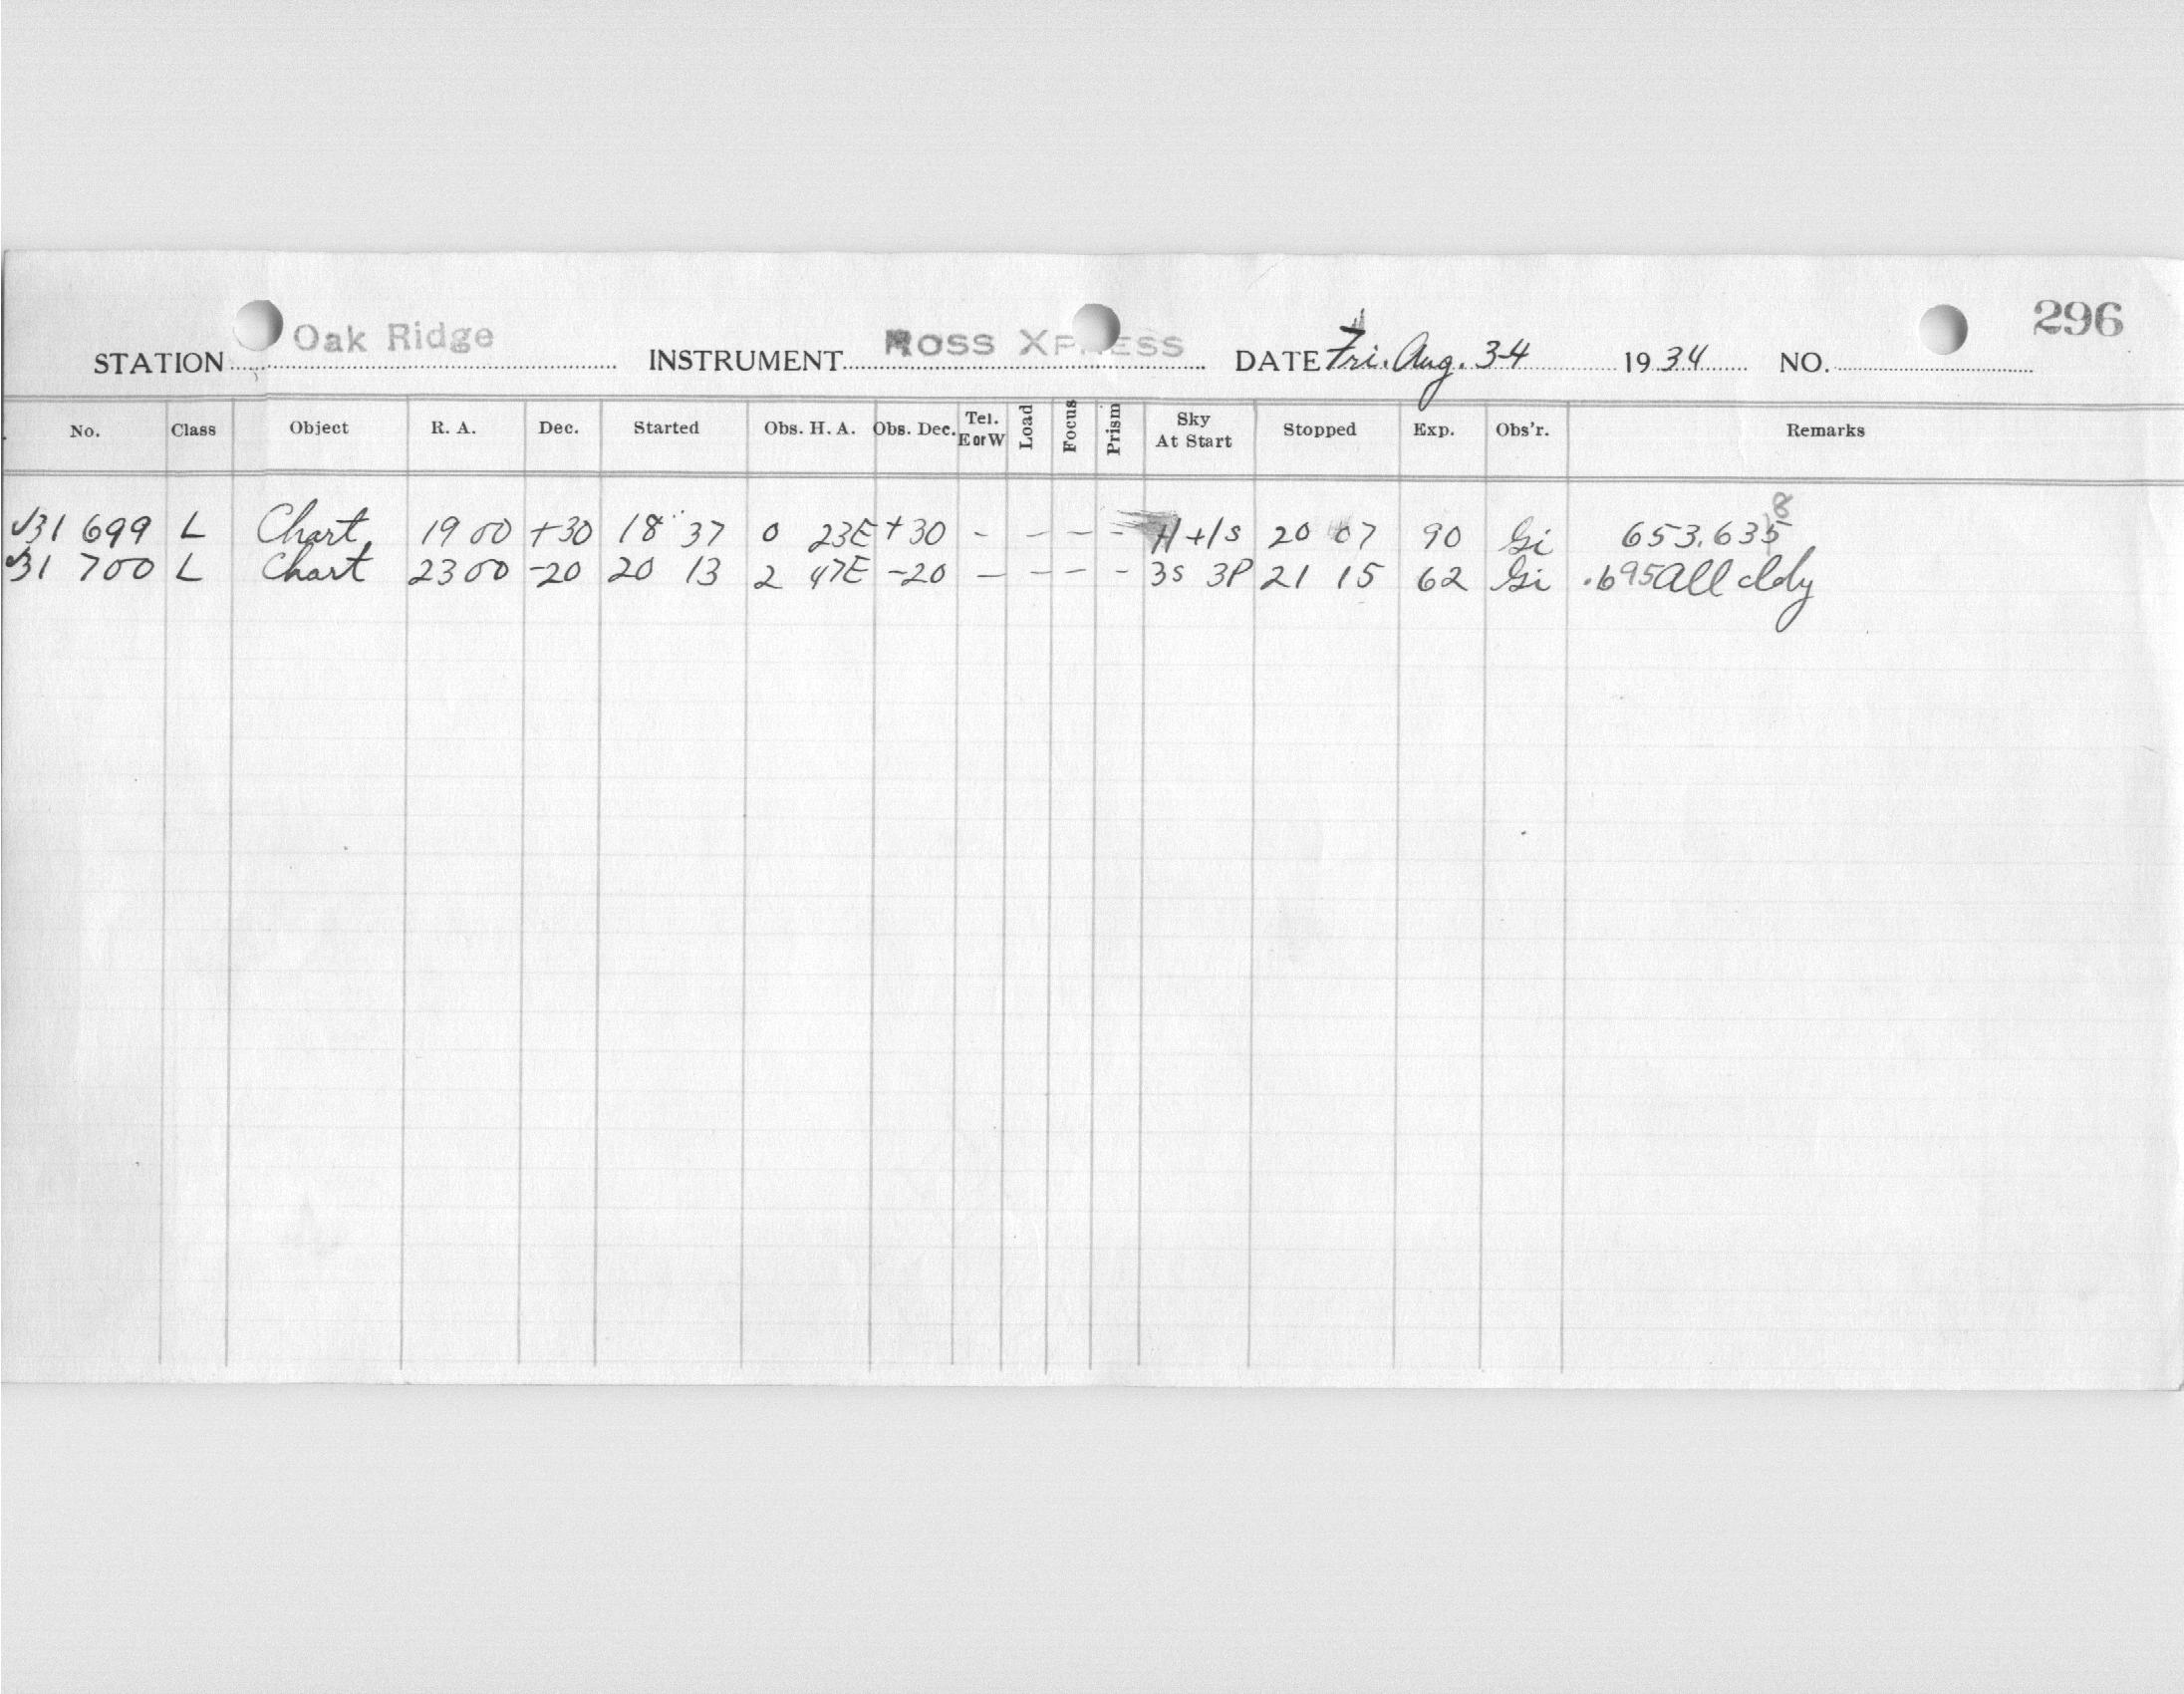 296
STATION Oak Ridge INSTRUMENT Ross Xpress DATE Fri. Aug. 3-4 1934 NO.
No. Class Object R. A. Dec. Started Obs. H. A. Obs. Dec. Tel. E or W Load Focus Prism Sky At Start Stopped Exp. Obs'r. Remarks
√31 699 L Chart 19 00 +30 18 37 0 23E +30 - - - - H+1s 20 07 90 Gi 653.635 8
√31 700 L Chart 23 00 -20 20 13 2 47E -20 - - - - 3s 3P 21 15 62 Gi .695 All cldy